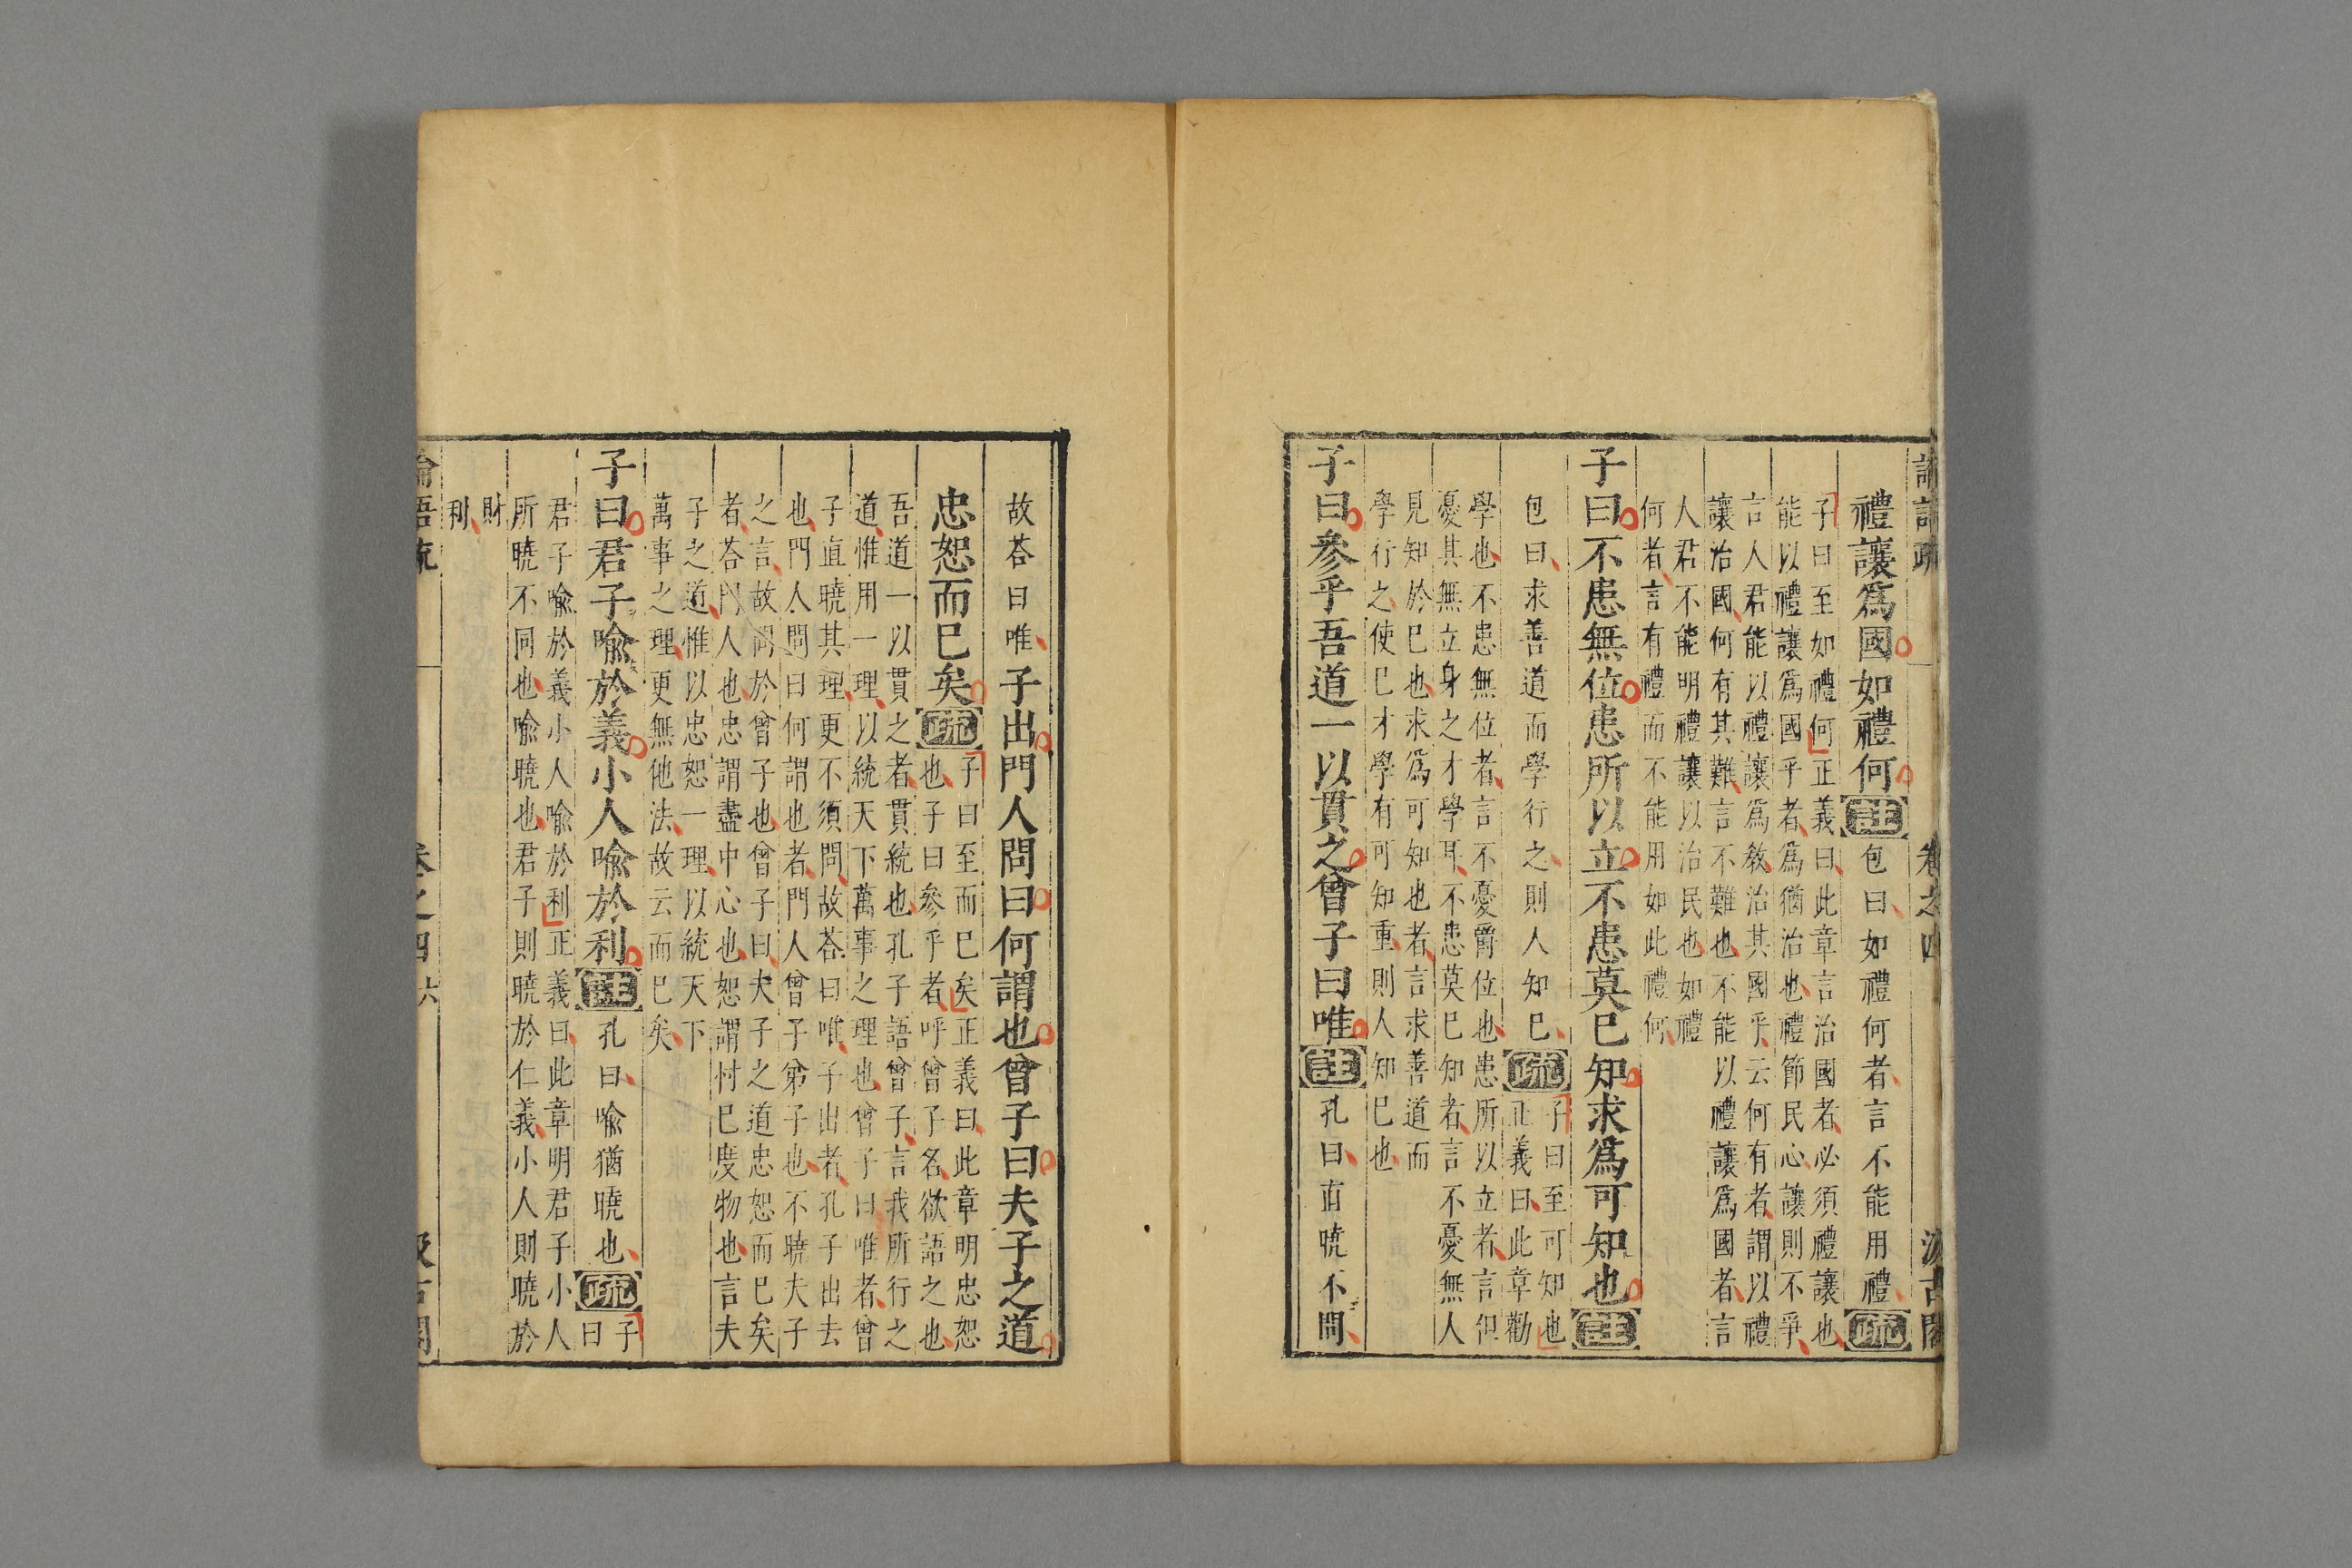 論語疏 卷之四 汲古閣
禮讓爲國如禮何註包曰如禮何者言不能用禮疏
子曰至如禮何正義曰此章言治國者必須禮讓也
能以禮讓爲國乎者爲猶治也禮節民心讓則不爭
言人君能以禮讓爲教治其國乎云何有者謂以禮
讓治國何有其難言不難也不能以禮讓爲國者言
人君不能明禮讓以治民也如禮
何者言有禮而不能用如此禮何
子曰不患無位患所以立不患莫已知求爲可知也註
包曰求善道而學行之則人知已疏
子曰至可知也
正義曰此章勸
學也不患無位者言不憂爵位也患所以立者言但
憂其無立身之才學耳不患莫已知者言不憂無人
見知於已也求爲可知也者言求善道而
學行之使已才學有可知重則人知已也
子曰參乎吾道一以貫之曾子曰唯註孔曰直曉不問
故荅曰唯子出門人問曰何謂也曾子曰夫子之道
忠恕而已矣疏
子曰至而已矣正義曰此章明忠恕
也子曰參乎者呼曾子名欲語之也
吾道一以貫之者貫統也孔子語曾子言我所行之
道惟用一理以統天下萬事之理也曾子曰唯者曾
子直曉其理更不須問故荅曰唯子出者孔子出去
也門人問曰何謂也者門人曾子弟子也不曉夫子
之言故問於曾子也曾子曰夫子之道忠恕而已矣
者荅門人也忠謂盡中心也恕謂忖已度物也言夫
子之道惟以忠恕一理以統天下
萬事之理更無他法故云而已矣
子曰君子喻於義小人喻於利註孔曰喻猶曉也疏
子
曰
君子喻於義小人喻於利正義曰此章明君子小人
所曉不同也喻曉也君子則曉於仁義小人則曉於
財
利
論語疏 卷之四 六 汲古閣